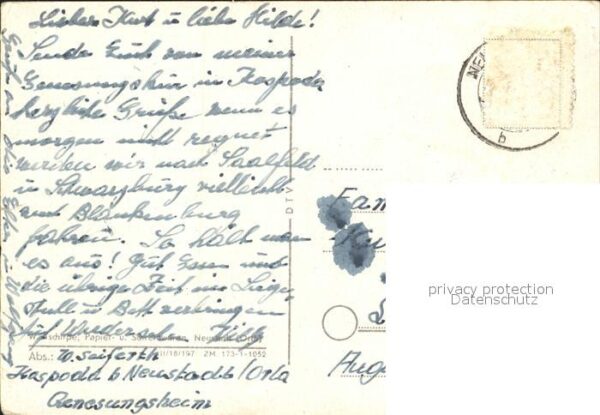 Lieber Kurt u liebe Hilde!
Sende Euch von meiner
Genesungskur in Kospoda
herzliche Grüße wenn es
morgen nicht regnet
werden wir nach Saalfeld
u Schwarzburg vielleicht
und Blankenburg
fahren. So hält man
es aus! Gut Essen und
die übrige Zeit im Liege-
stuhl u Bett verbringen
Auf Wiedersehn
Papier- u.
Neustadt (Orla)
/18/197 ZM 173-1-1052
Abs.: W. Seiferth
Kospoda b Neustadt/Orla
Genesungsheim
DTV
b
Fam
Ku
Aug
privacy protection
Datenschutz